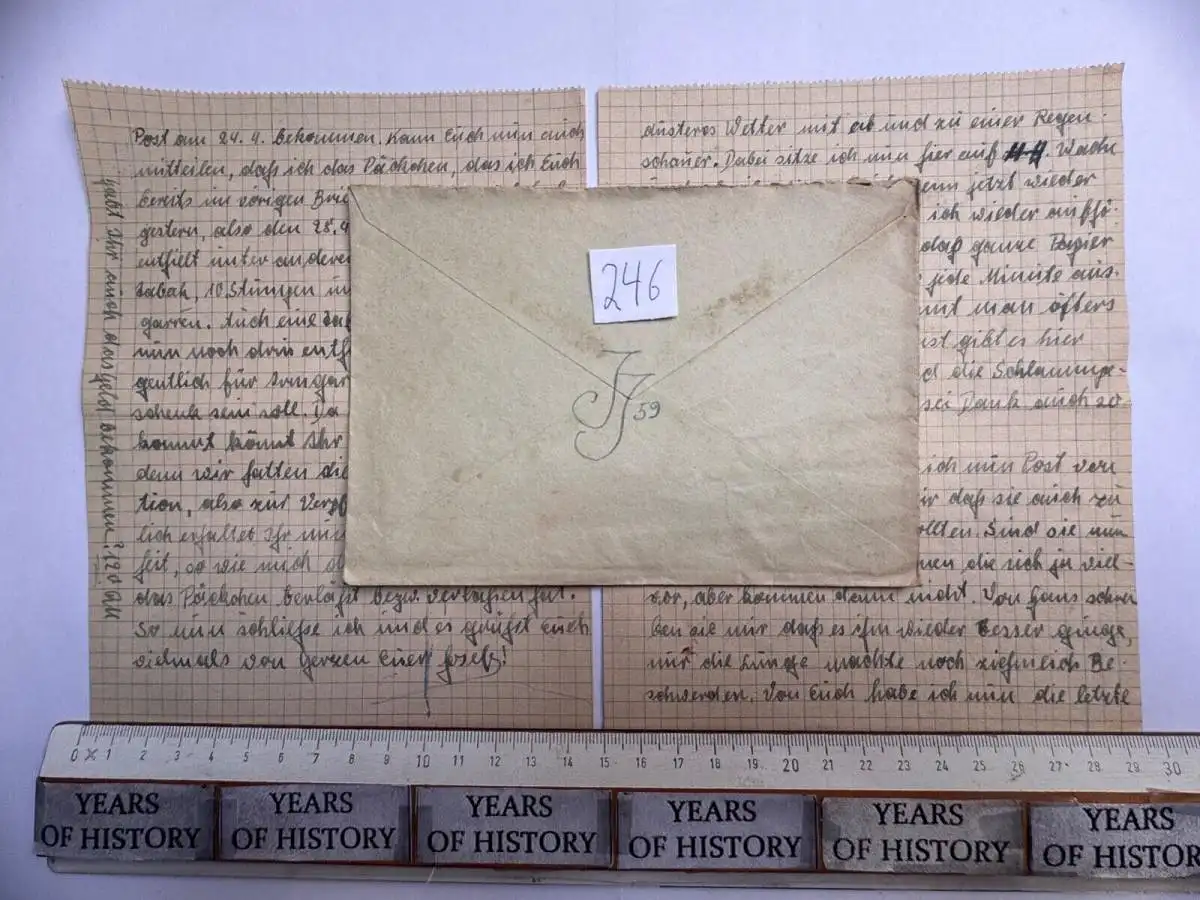 Post am 24. 4. bekommen. Kann Euch nun auch
mitteilen, daß ich das Päckchen, das ich Euch
bereits im vorigen
gestern, also den
entfielt unter
tabak, 10 Stumpen
garren. Auch eine
nun noch drin
gentlich für
schenk sein soll. Da
kommt könnt Ihr
denn wir hatten die
tion, also zur
lich erhaltet Ihr
heit, so wie mich
das Päckchen verläßt bezw. verlassen hat.
So nun schließe ich und es grüßt Euch
vielmals von Herzen Euer Josef!
habt Ihr auch das Geld bekommen? 120 RM
düsteres Wetter mit ab und zu einer Regen-
schauer. Dabei sitze ich nun hier auf Wache
denn jetzt wieder
ich wieder aufhö-
daß ganze Papier
jede Minute aus-
man öfters
gibt es hier
die Schlammpe-
sei Dank auch so
ich nun Post von
daß sie auch zu
wollten. Sind sie nun
die sich ja viel-
vor, aber kommen denn nicht. Von Hans schrei-
ben sie mir daß es ihm wieder besser ginge,
nur die Lunge machte noch ziehmlich Be-
schwerden. Von Euch habe ich nun die letzte
246
JJ 59
0 1 2 3 4 5 6 7 8 9 10 11 12 13 14 15 16 17 18 19 20 21 22 23 24 25 26 27 28 29 30
YEARS OF HISTORY
YEARS OF HISTORY
YEARS OF HISTORY
YEARS OF HISTORY
YEARS OF HISTORY
YEARS OF HISTORY